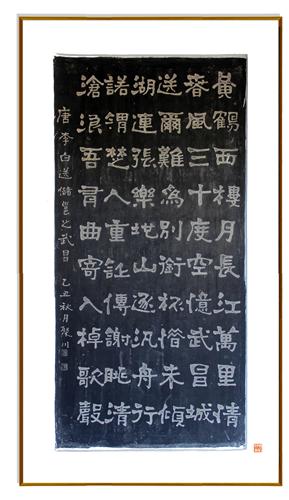 黃鶴西樓月長江萬里情
春風三十度空憶武昌城
送爾難為別銜杯惜未傾
湖連張樂地山逐汎舟行
諾謂楚人重詩傳謝朓清
滄浪吾有曲寄入棹歌聲
唐李白送儲邕之武昌 乙丑秋月